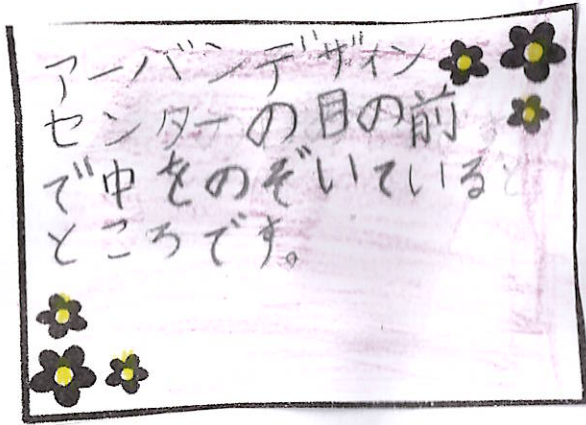 アーバンデザイン
センターの目の前
で中をのぞいている
ところです。